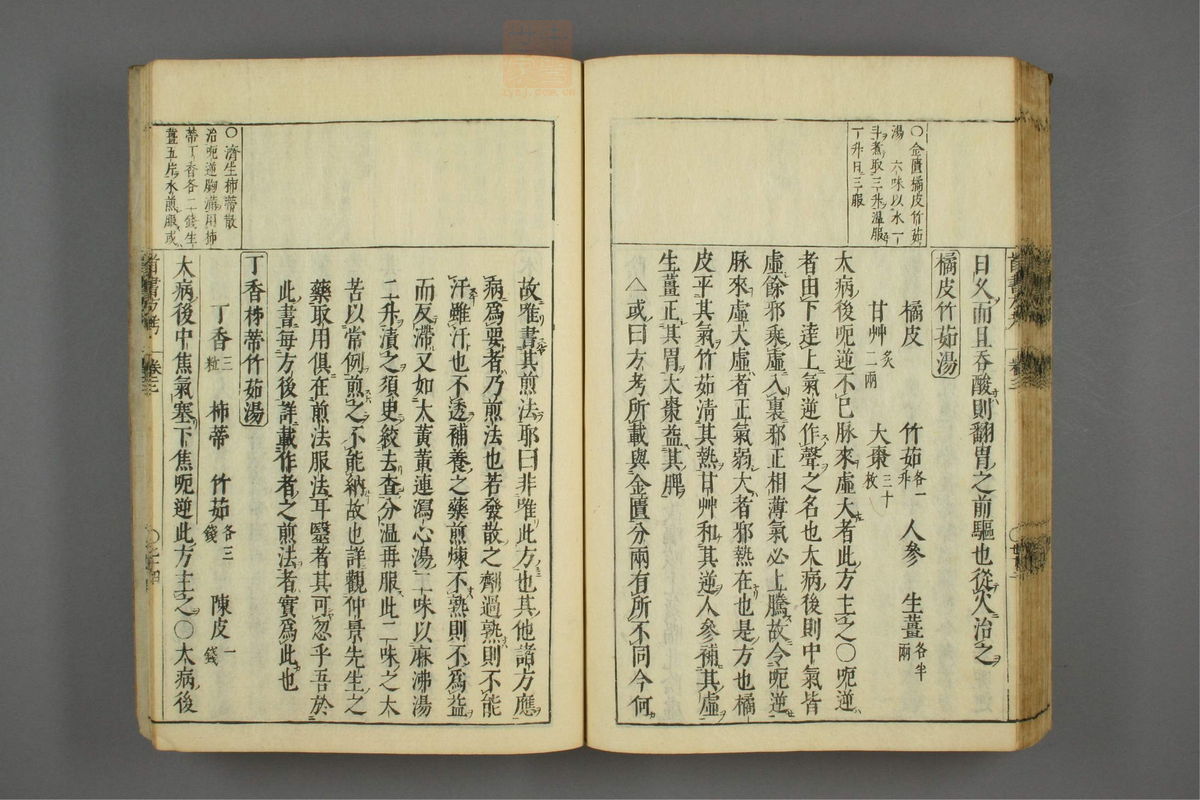 〇金匱橘皮竹茹
湯 六味以水一
斗煮取三升溫服
一升日三服
日久而且吞酸則翻胃之前驅也從火治之
橘皮竹茹湯
橘皮 竹茹各一升 人參 生薑各半兩
甘艸炙二兩 大棗三十枚
大病後呃逆不已脉來虛大者此方主之〇呃逆
者由下逹上氣逆作聲之名也大病後則中氣皆
虛餘邪乘虛入裏邪正相薄氣必上騰故令呃逆
脉來虛大虛者正氣弱大者邪熱在也是方也橘
皮平其氣竹茹淸其熱甘艸和其逆人參補其虛
生薑正其胃大棗益其脾
△或曰方考所載與金匱分兩有所不同今何
〇濟生柿蒂散
治呃逆胸滿用柿
蒂丁香各二錢生
薑五片水煎服或
故唯書其煎法耶曰非唯此方也其他諸方應
病爲要者乃煎法也若發散之劑過熟則不能
汗雖汗也不透補養之藥煎煉不熟則不爲益
而反滯又如大黃黃連瀉心湯二味以麻沸湯
二升漬之須臾絞去查分温再服此二味之大
苦以常例煎之不能納故也詳觀仲景先生之
藥取用俱在煎法服法耳毉者其可忽乎吾於
此書每方後詳載作者之煎法者實爲此也
丁香柿蒂竹茹湯
丁香三粒 柿蒂 竹茹各三錢 陳皮一錢
大病後中焦氣塞下焦呃逆此方主之〇大病後